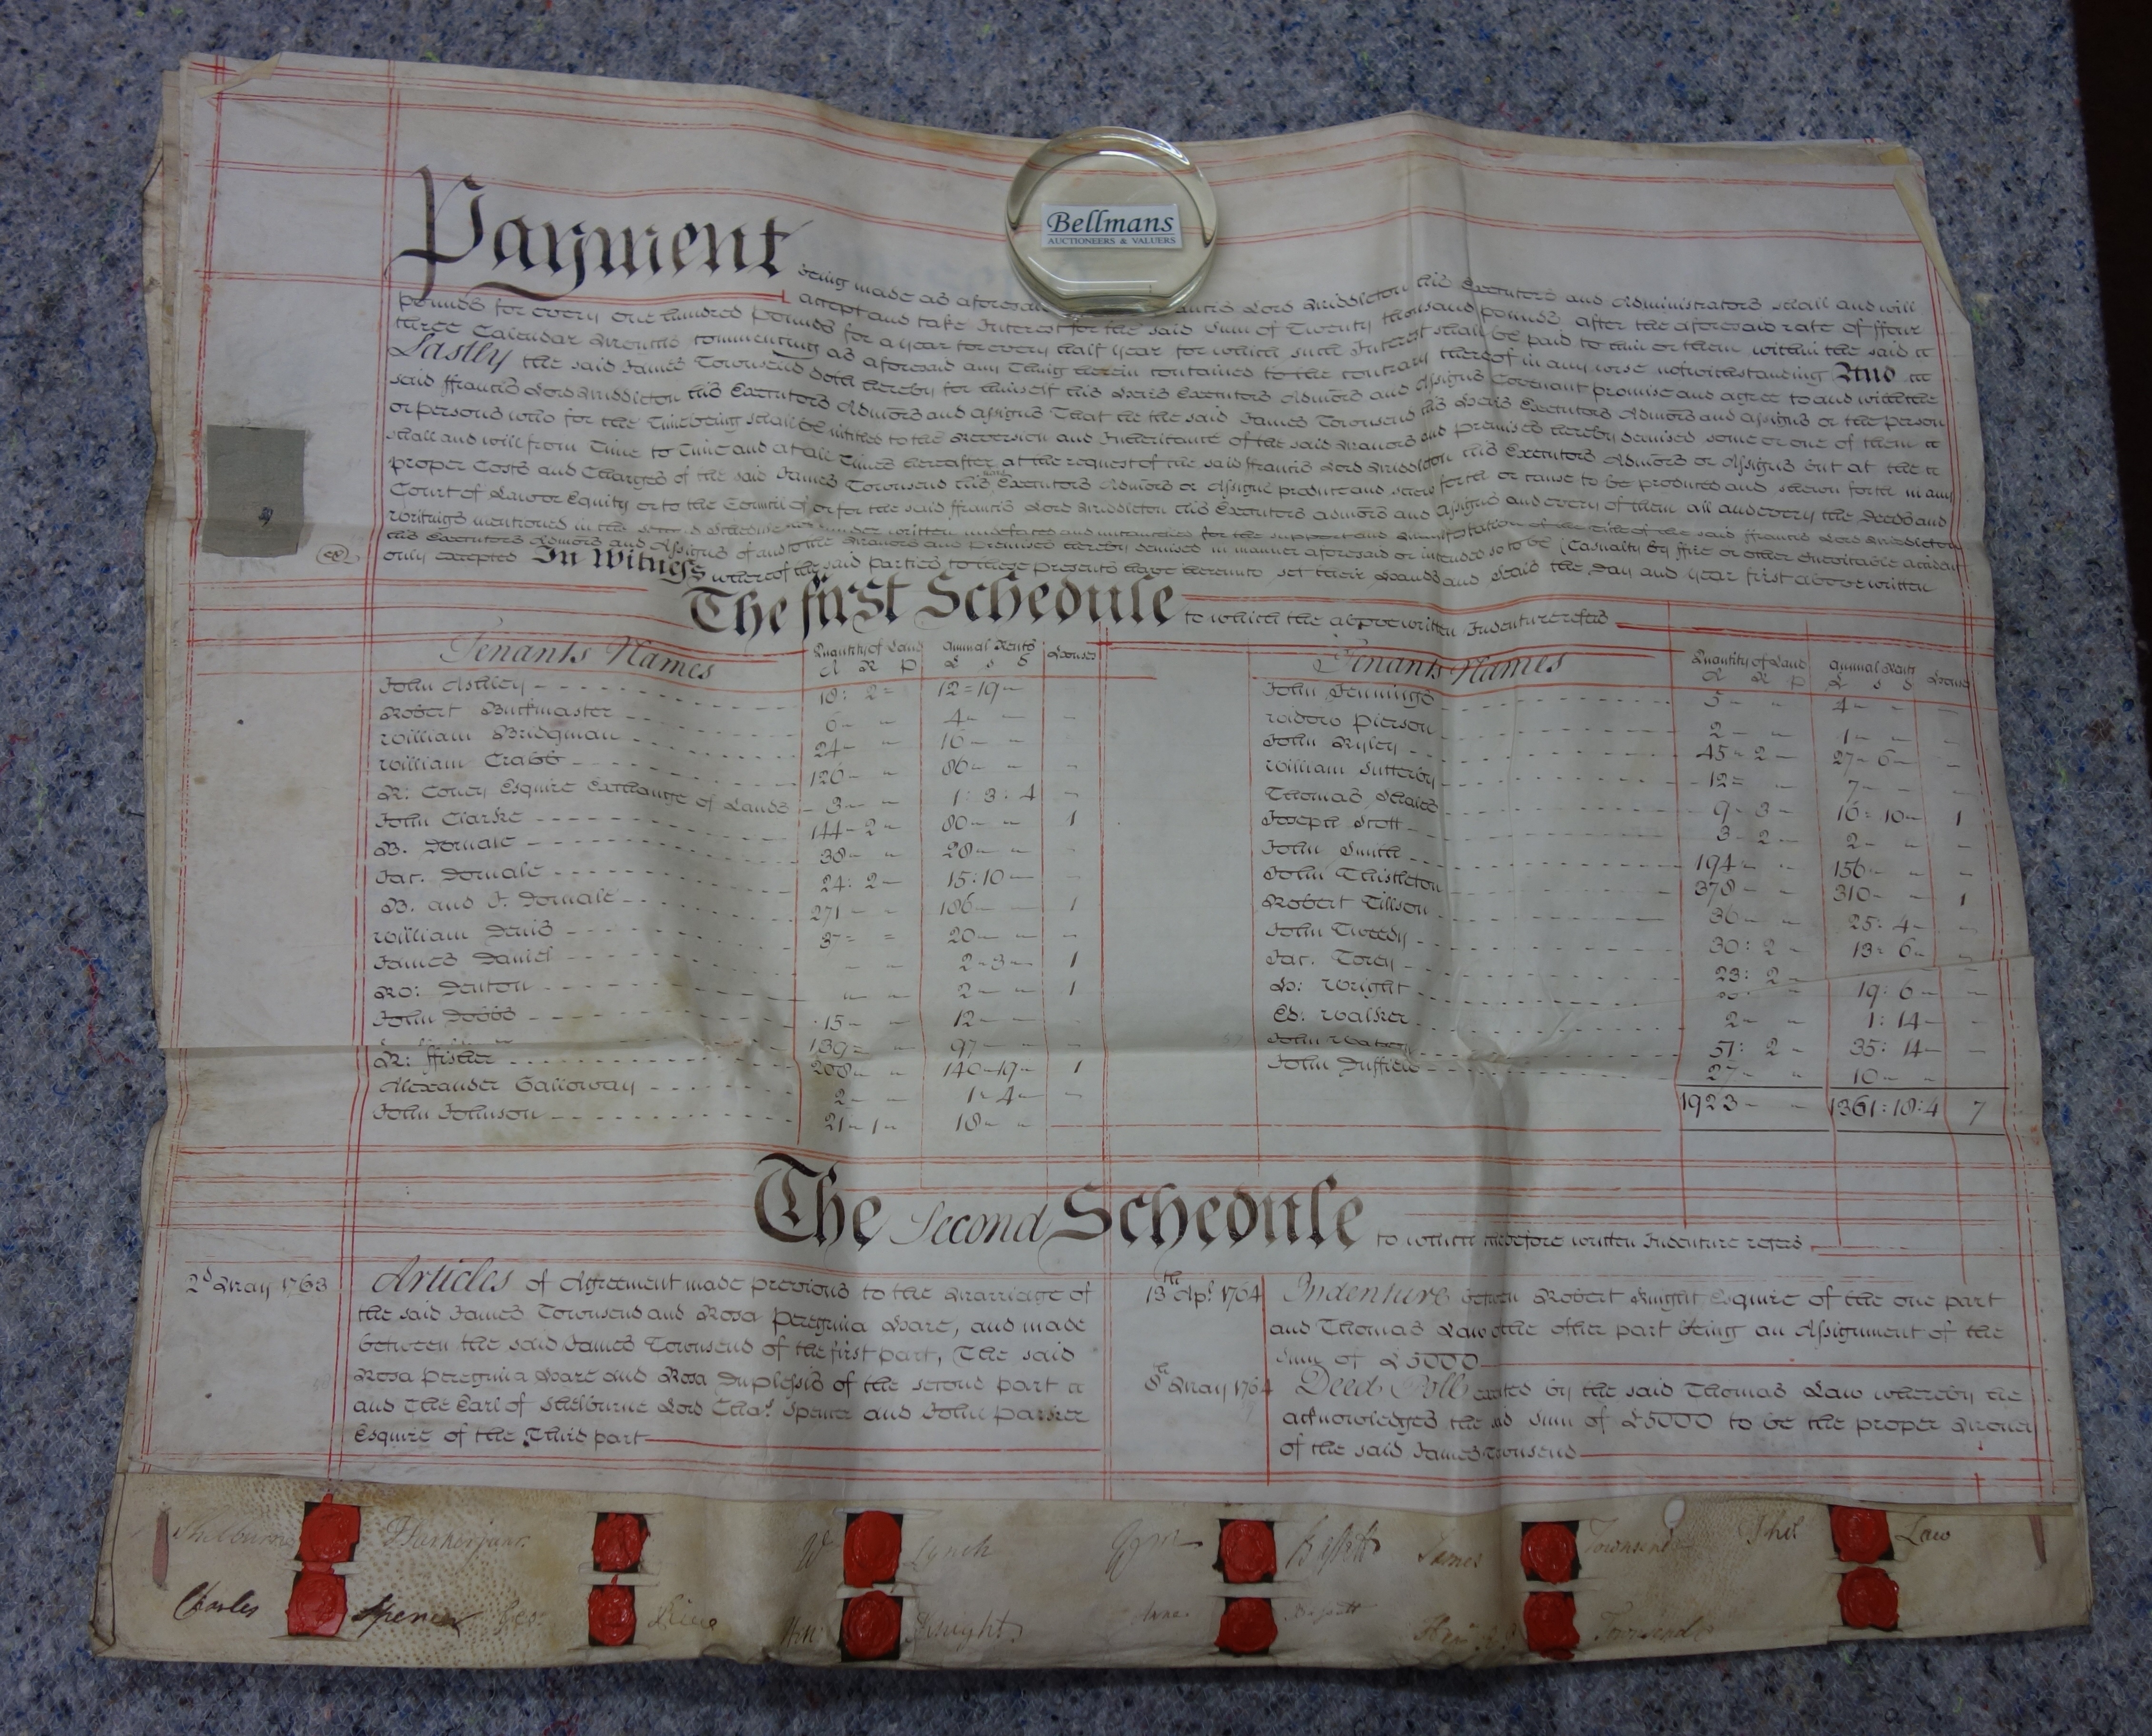 Bellmans
AUCTIONEERS & VALUERS
Payment being made as aforesaid Lord Middleton his Executors and Administrators shall and will
accept and take Interest for the said Sum of Twenty thousand pounds after the aforesaid rate of ffour
pounds for every one hundred pounds for a year for every half year for which such Interest shall be paid to him or them within the said
three Calendar Months commencing as aforesaid any Thing herein contained to the contrary thereof in any wise notwithstanding And
Lastly the said James Townsend doth hereby for himself his Heirs Executors Admors and Assigns Covenant promise and agree to and with the
said ffrancis Lord Middleton his Executors Admors and Assigns That he the said James Townsend his Heirs Executors Admors and Assigns or the person
or persons who for the Time being shall be intitled to the Reversion and Inheritance of the said Manors and premises hereby demised some or one of them
shall and will from Time to Time and at all Times hereafter at the request of the said ffrancis Lord Middleton his Executors Admors or Assigns but at the
proper Costs and Charges of the said James Townsend his Executors Admors or Assigns produce and shew forth or cause to be produced and shewn forth in any
Court of Law or Equity or to the Council of or for the said ffrancis Lord Middleton his Executors Admors and Assigns and every of them all and every the Deeds and
Writings mentioned in the Second Schedule under written undefaced and uncancelled for the support and Manifestation of the Title of the said ffrancis Lord Middleton
his Executors Admors and Assigns of and to the Manors and Premises hereby demised in manner aforesaid or intended so to be (Casualty by ffire or other Inevitable accident
only excepted In Witness whereof the said Parties to these Presents have hereunto set their Hands and Seals the Day and Year first above written
The first Schedule to which the above written Indenture refers
Tenants Names Quantity of Land Annual Rents Houses
A R P £ s d
John Ashley 18: 2 12=19
Robert Buckmaster 6 4
William Bridgman 24 16
William Crabb 126 86
R: Coney Esquire Exchange of Lands 3 1: 3: 4
John Clarke 144 2 80 1
B. Dowale 38 28
Jac. Dowale 24: 2 15:10
B. and J. Dowale 271 186 1
William Denis 20
James Daniel 2 3 1
Ro: Denton 2 1
John Dobbs 15 12
139 97
R: ffisher 208 140 19 1
Alexander Galloway 2 1 4
John Johnson 21 1 18
Tenants Names Quantity of Land Annual Rents Houses
A R P £ s d
John Jennings 5 4
Widow Pierson 2 1
John Ryley 45 2 27 6
William Sutterby 12 7
Thomas 9 3 16: 10 1
Joseph Scott 3 2 2
John Smith 194 156
John Thistleton 378 310 1
Robert Tillson 36 25: 4
John Tweedy 30: 2 13: 6
Jac. Torey 23: 2
H: Wright 19: 6
Ed: Walker 2 1: 14
John Watson 51: 2 35: 14
John Duffield 27 10
1923 1361:18:4 7
The Second Schedule to which the before written Indenture refers
2d May 1763
Articles of Agreement made previous to the Marriage of
the said James Townsend and Rosa Peregrina Hare, and made
between the said James Townsend of the first part, The said
Rosa Peregrina Hare and Rosa Duplessis of the second part
and The Earl of Shelburne Lord Chas. Spencer and John Parker
Esquire of the Third part
13th Apl. 1764
Indenture between Robert Knight Esquire of the one part
and Thomas Law of the other part being an Assignment of the
Sum of £5000
8th May 1764
Deed Poll executed by the said Thomas Law whereby he
acknowledges the said Sum of £5000 to be the proper Money
of the said James Townsend
Shelburne J Parker junr. W Lynch Bassett James Townsend Thos Law
Charles Spencer Geo: Wm Knight Anne Bassett Townsend